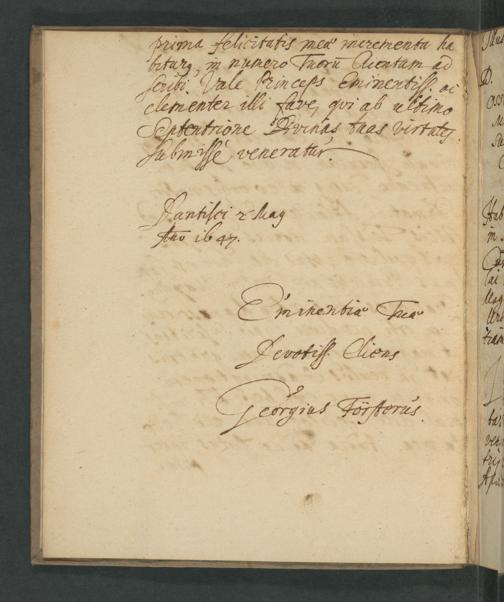 prima felicitatis meæ incrementa ha
biturq, in numero Tuorũ Clientum ad
scribi. Vale Princeps Eminentiss. ac
clementer illi fave, qui ab ultimo
Septentrione Divinas tuas virtutes
submissè veneratur.
Dantisci 2 May
Ao 1647.
Eminentiæ Tuæ
Devotiss. Cliens
Geórgius Försterus.